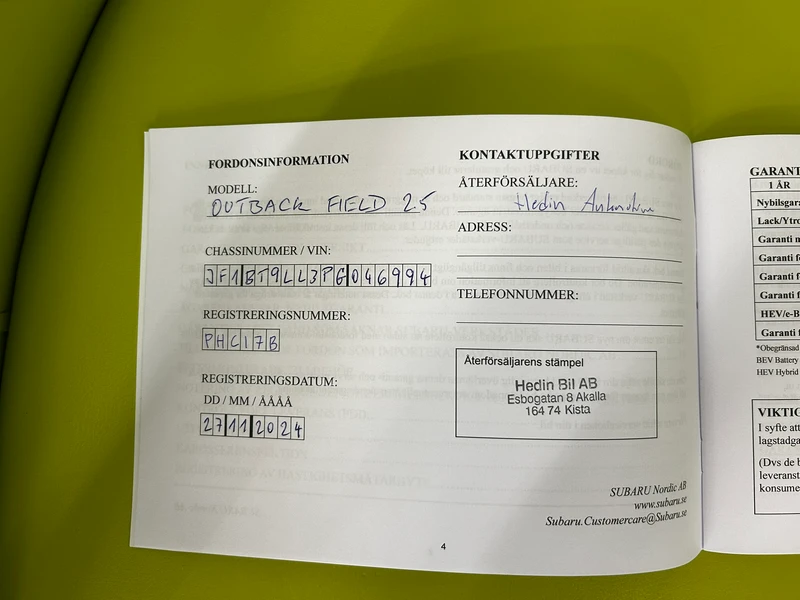 FORDONSINFORMATION
MODELL:
OUTBACK FIELD 2.5
CHASSINUMMER / VIN:
JF1BT9LL3PG046994
REGISTRERINGSNUMMER:
PHC17B
REGISTRERINGSDATUM:
DD / MM / ÅÅÅÅ
27112024
KONTAKTUPPGIFTER
ÅTERFÖRSÄLJARE:
Hedin Automotive
ADRESS:
TELEFONNUMMER:
Återförsäljarens stämpel
Hedin Bil AB
Esbogatan 8 Akalla
164 74 Kista
SUBARU Nordic AB
www.subaru.se
Subaru.Customercare@Subaru.se
4
GARANT
1 ÅR
Nybilsgara
Lack/Ytro
Garanti m
Garanti fö
Garanti fö
Garanti f
HEV/e-B
Garanti f
*Obegränsad
BEV Battery
HEV Hybrid
VIKTIG
I syfte att
lagstadga
(Dvs de b
leveranst
konsume